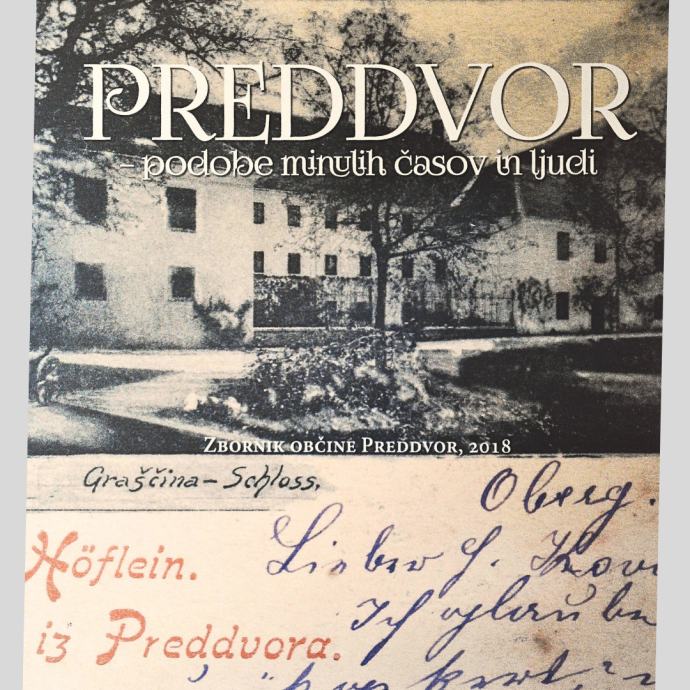 PREDDVOR
– podobe minulih časov in ljudi
Zbornik občine Preddvor, 2018
Graščina – Schloss.
Oberg.
Höflein.
Lieber H.
iz Preddvora.
Ich glaube